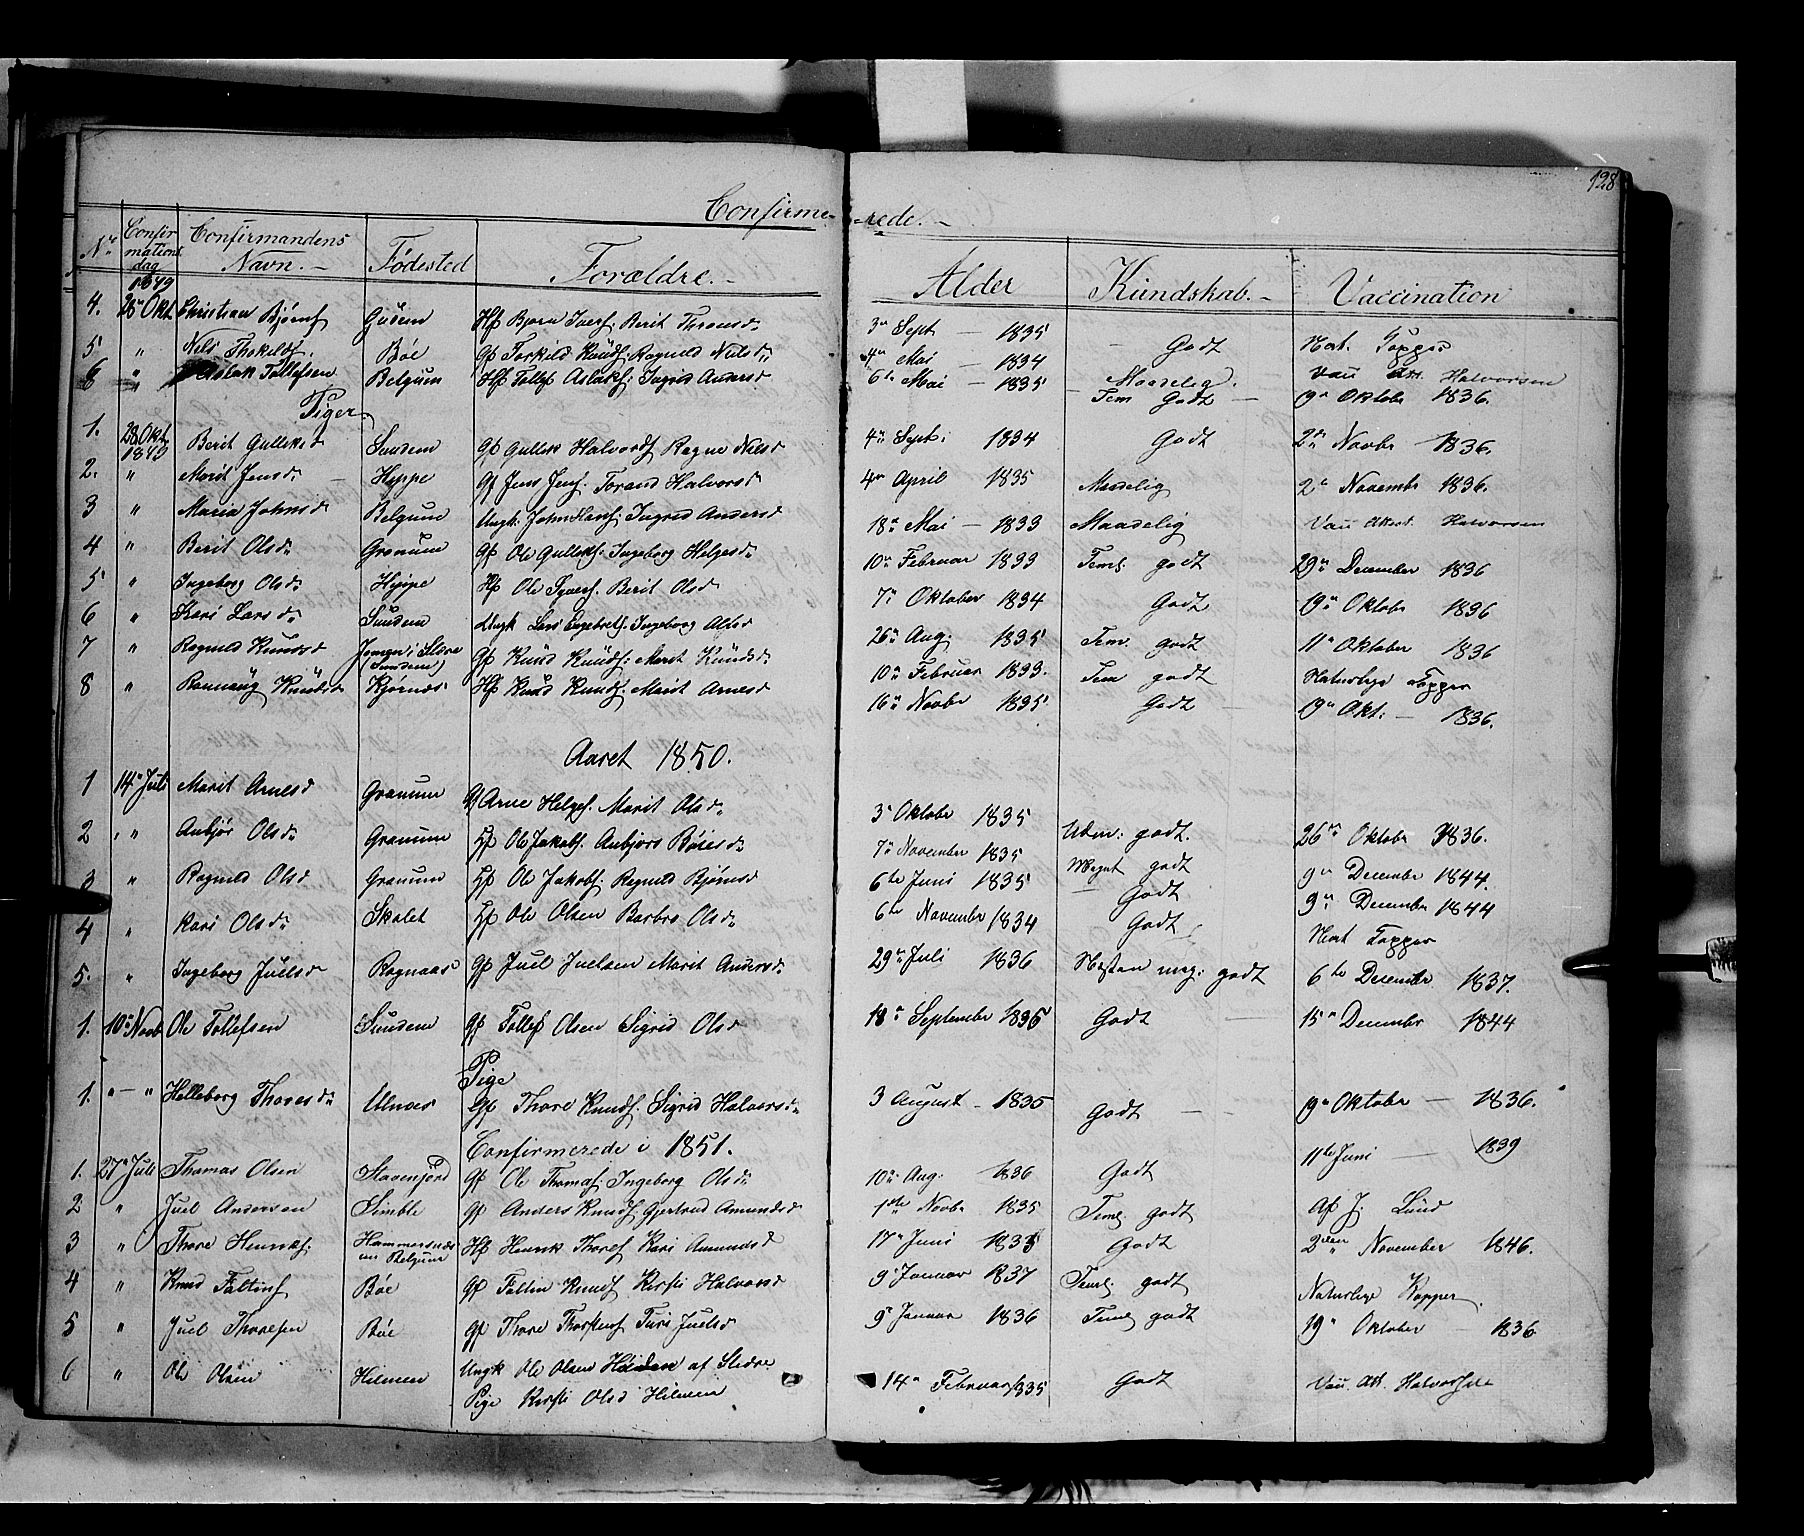 128
Confirmerede.
No Confirmations dag Confirmandens Navn. Fødested Forældre. Alder Kundskab. Vaccination
1849
4. 28 Okt. Christian Bjørnf Gudem Hf Bjørn Iverf. Berit Thronsd 3 Sept 1835 Godt Nat. Copper
5 " Nils Thokildf. Bøe Gf Torkild Knudf. Ragnild Nilsd 4 Mai 1834 Maadelig. Vau Att. Halvorsen
6 " Aslak Tollefsen Belgum Hf Tollef Aslakf. Ingrid Andersd 6te Mai 1835 Tem Godt 19 Oktobr 1836.
Piger
1. 28 Okt. 1849 Berit Gulliksd Sundem Gf Gullik Halvordf Ragne Nilsd 4 Sept: 1834 Godt 2 Novbr 1836.
2. " Marit Jensd Hippe Gf Jens Jenf. Torand Halvorsd 4 April 1835 Maadelig 2 Novembr 1836.
3 " Maria Johnsd Belgum Ungk. John Hansf. Ingrid Andersd 18 Mai 1833 Maadelig Vau Att. Halvorsen
4 " Berit Olsd Granum Gf Ole Gulliksf. Ingeborg Helgesd 10 Februar 1833 Teml. godt 29 December 1836
5 " Ingeborg Olsd Hippe Hf Ole Iverf. Berit Olsd 7 Oktober 1834 Godt 19 Oktobr 1836
6 " Kari Larsd Sundem Ungk Lars Engebretf. Ingeborg Olsd 26 Aug. 1835 Tem. godt 11 Oktober 1836
7 " Ragnild Knudsd i Slire (Sundem) Gf Knud Knudf. Marit Knudsd 10 Februar 1833. Tem godt Naturlige Copper
8 " Rannaug Knudsd Kjørnæs Hf Knud Knudf. Marit Arnesd 16 Novbr 1835 Godt 19 Okt: 1836.
Aaret 1850.
1 14 Juli Marit Arnesd Granum Gf Arne Helgef. Marit Olsd 3 Oktobr 1835 Udm. godt. 26 Oktobr 1836.
2 " Anbjør Olsd Granum Hf Ole Jakobf. Anbjørs 7 November 1835 Meget godt 9 Decembr 1844.
3 " Ragnild Olsd Granum Hf Ole Jakobf Ragnild Bjørnsd 6te Juni 1835 Godt 9 Decembr 1844
4 " Kari Olsd Skalet Hf Ole Olsen Barbro Olsd 6te Novembr 1834 Godt Nat Copper
5. " Ingeborg Juelsd Ragnaas Gf Juel Juelsen Marit Andersd 29 Juli 1836 Næsten meg: godt 6te Decembr 1837.
1. 10 Novb Ole Tollefsen Sundem Gf Tollef Olsen Sigrid Olsd 18 Septembr 1835 Godt 15 Decembr 1844
Pige
1. " — " Helleborg Thoresd Ulnæs Gf Thore Knudf. Sigrid Halvorsd 3 August 1835 Godt 19 Oktobr 1836.
Confirmerede i 1851.
1. 27 Juli Thomas Olsen Stavenjord Gf Ole Thomasf. Ingeborg Olsd 10 Aug. 1836 Godt 11te Juni 1839
2 " Juel Andersen Simble Gf Anders Knudf Gjertrud Amundsd 1ste Novbr 1835 Teml godt Af J. Lund
3 " Thore Henrikf. Hammersnæs Belgum Hf Henrik Thoref Kari Amundsd 17 Juni 1835 Godt 2den November 1846.
4 " Knud Faltinf Bøe Gf Faltin Knudf Kirsti Halvorsd 9 Januar 1837 Teml godt Naturlige Kopper.
5 " Juel Thoresen Bøe Gf Thore Thorstenf Turi Juelsd 9 Januar 1836 Teml godt 19 Oktober 1836.
6 " Ole Olsen Hilmen Ungk Ole Olsen Heiden af Slidre 14 Februar 1835 Godt Vau. Att. Halvorsen
Pige Kirsti Olsd Hilmen